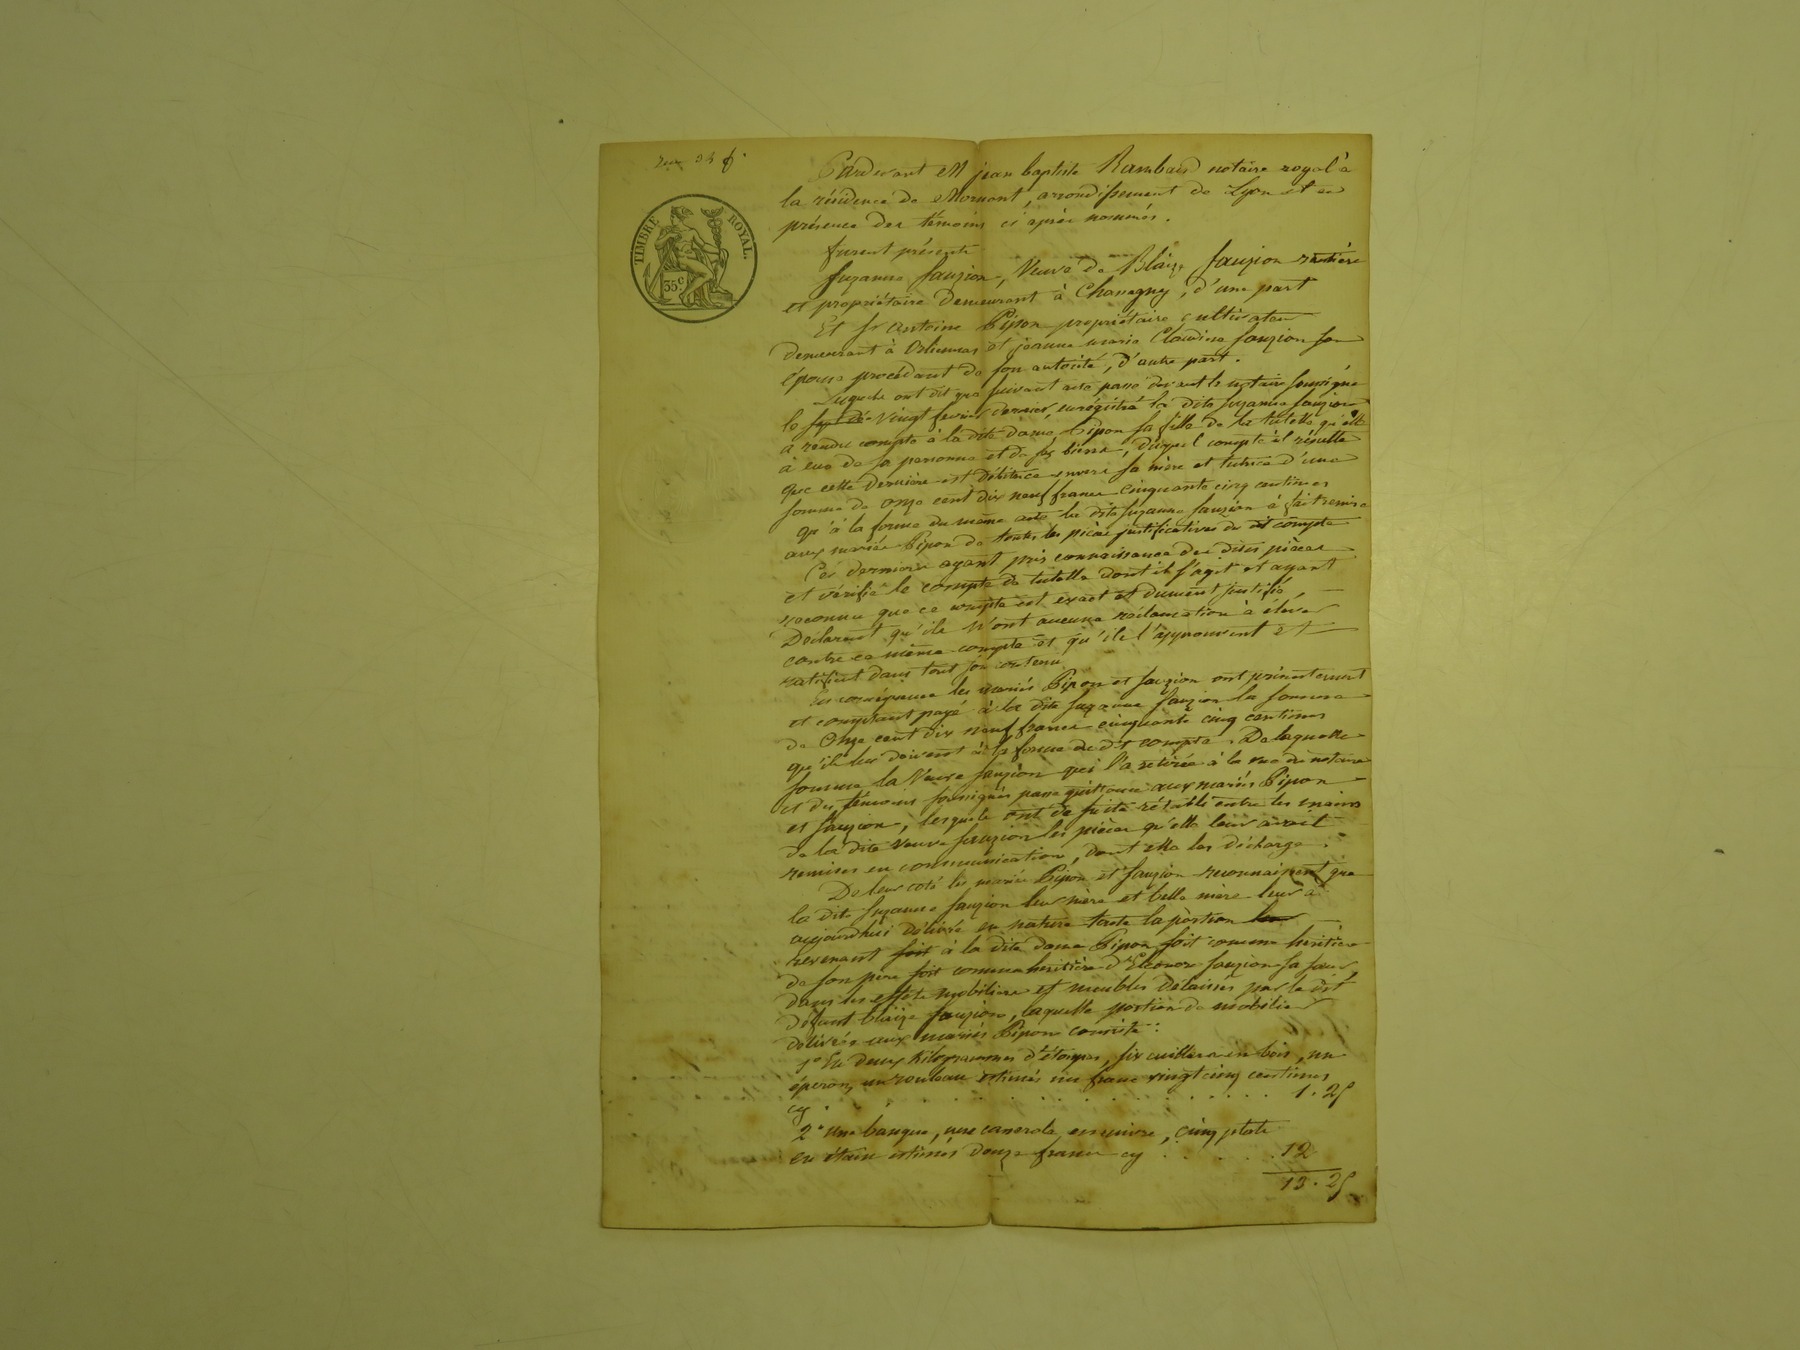 TIMBRE ROYAL.
35c
Pardevant M jean baptiste Rambaud notaire royal à
la résidence de Mornant, arrondissement de Lyon et en
présence des témoins ci après nommés.
furent présents
Suzanne fauzion, Veuve de Blaize fauzion rentière
et propriétaire demeurant à Chavagny, d'une part
Et Sr antoine Pipon propriétaire cultivateur
demeurant à Orliennas et jeanne marie Claudine fauzion son
épouse procédant de son autorité, d'autre part.
Lesquels ont dit que suivant acte passé devant le notaire soussigné
le vingt fevrier dernier, enrégistré la dite suzanne fauzion
a rendu compte à la dite dame Pipon sa fille de la tutelle qu'elle
à eue de sa personne et de ses biens, duquel compte il résulte
que cette dernière est débitrice envers sa mère et tutrice d'une
somme de onze cent dix neuf francs cinquante cinq centimes
qu'à la forme du même acte la dite suzanne fauzion à fait remise
aux mariés Pipon de toutes les pièces justificatives du dit compte
Ces derniers ayant pris connaissance des dites pièces
et vérifié le compte de tutelle dont il s'agit et ayant
reconnu que ce compte est exact et dument justifié,
Déclarent qu'ils n'ont aucune réclamation à élever
contre ce même compte et qu'ils l'approuvent et
ratifient dans tout son contenu
En conséquence les mariés Pipon et fauzion ont présentement
et comptant payé à la dite suzanne fauzion la somme
de Onze cent dix neuf francs cinquante cinq centimes
qu'ils lui doivent à la forme du dit compte. De laquelle
somme la Veuve fauzion qui l'a retirée à la vue du notaire
et des témoins soussignés passe quittance aux mariés Pipon
et fauzion, lesquels ont de suite rétabli entre les mains
de la dite Veuve fauzion les pièces qu'elle leur avait
remises en communication, dont elle les décharge.
De leur coté les mariés Pipon et fauzion reconnaissent que
la dite suzanne fauzion leur mère et belle mère leur a
aujourdhui délivré en nature toute la portion
revenant à la dite dame Pipon soit comme héritière
de son père soit comme héritière d'Eléonore fauzion sa sœur,
dans les effets mobiliers et meubles délaissés par le dit
défunt blaize fauzion, laquelle portion de mobilier
délivrée aux mariés Pipon consiste:
1° En deux kilogrammes d'étoupes, six cuillers en bois, un
éperon, un rouleau estimés un franc vingt cinq centimes
cy . . . . . . . . . . . . . . . . 1.25
2° Une banque, une casserole en cuivre, cinq plats
en étain estimés douze francs cy . . . . . 12
13.25